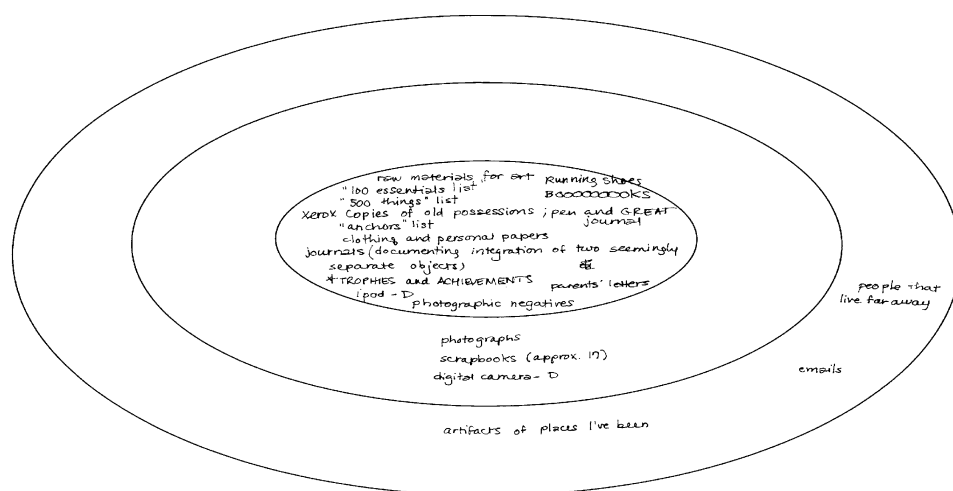 raw materials for art
Running Shoes
"100 essentials list"
BOOOOOOOOKS
"500 things" list
Xerox Copies of old possessions ; pen and GREAT journal
"anchors" list
clothing and personal papers
journals (documenting integration of two seemingly
separate objects)
*TROPHIES and ACHIEVEMENTS
parents' letters
ipod - D
photographic negatives
people that
live far away
photographs
scrapbooks (approx. 17)
digital camera - D
emails
artifacts of places I've been